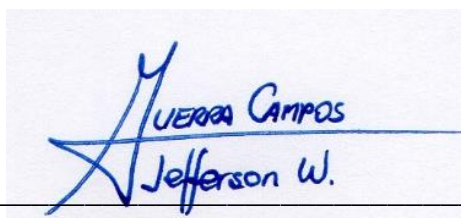 GUERRA CAMPOS
Jefferson W.